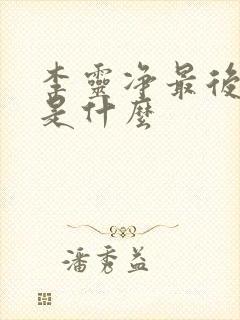 李靈净最後
是什麼
潘秀益